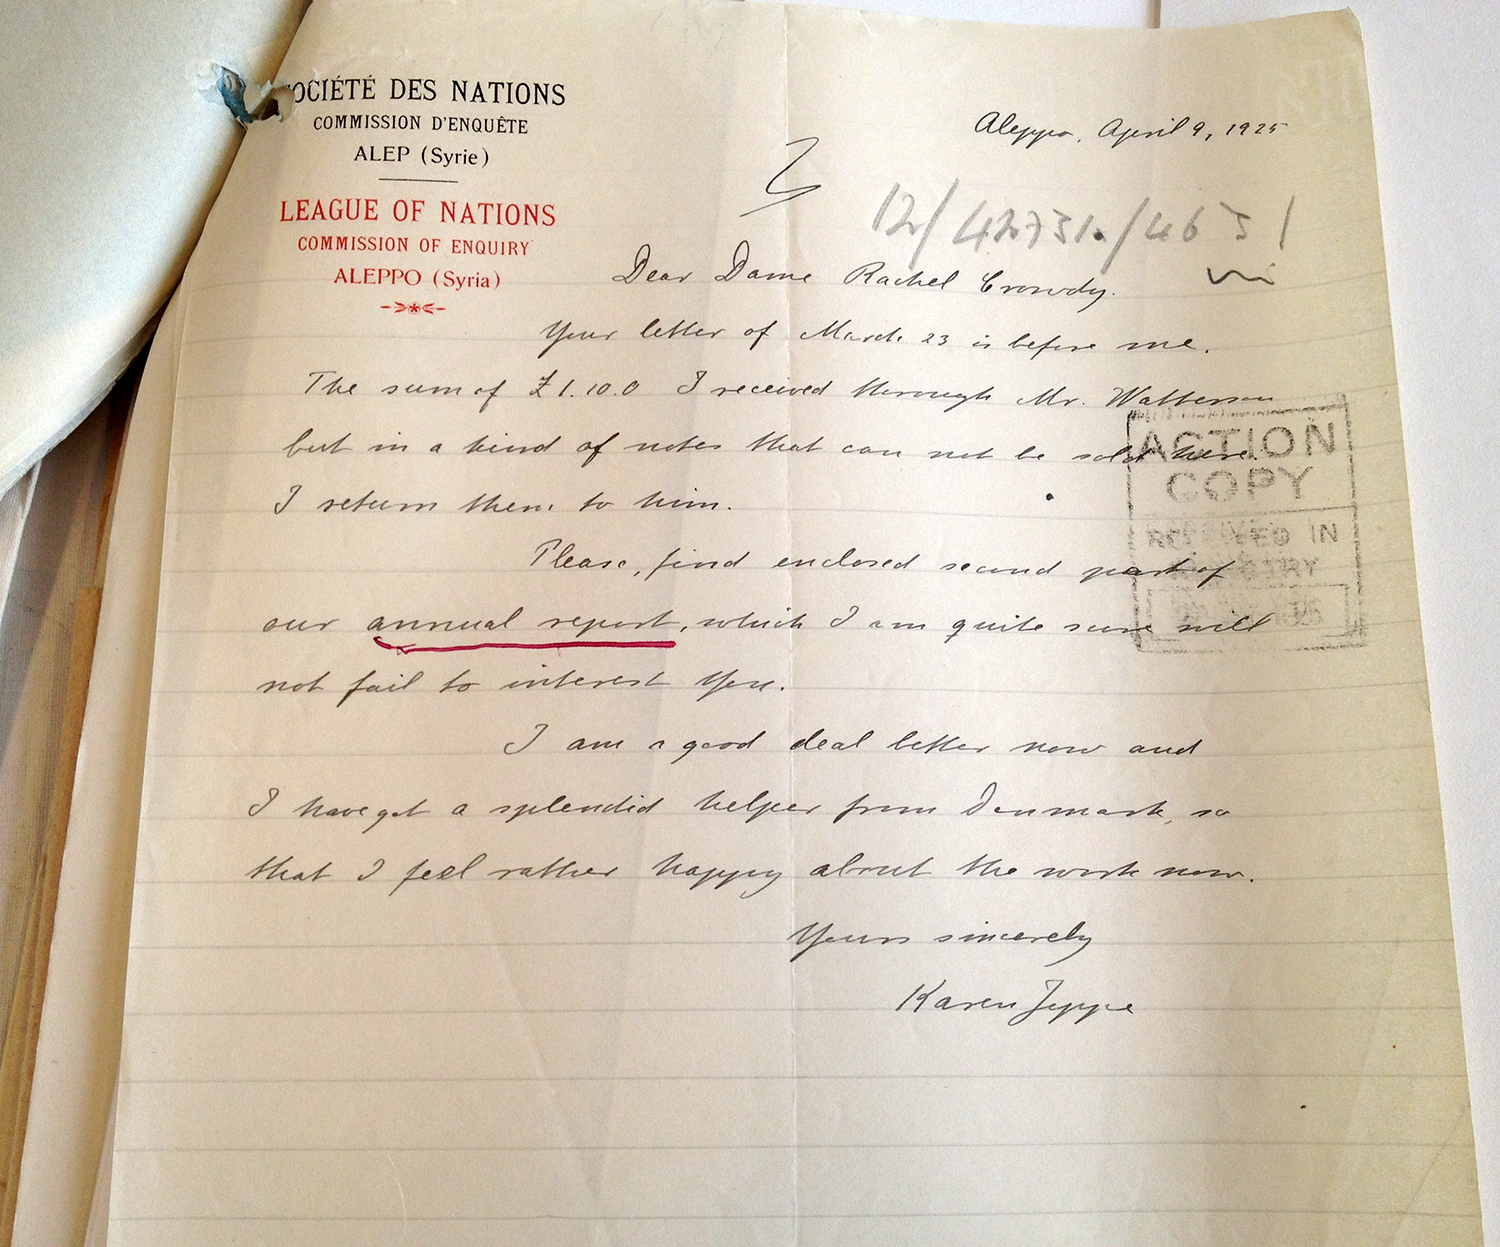 SOCIÉTÉ DES NATIONS
COMMISSION D'ENQUÊTE
ALEP (Syrie)
LEAGUE OF NATIONS
COMMISSION OF ENQUIRY
ALEPPO (Syria)
Aleppo, April 9, 1925
12/42731./4651
Dear Dame Rachel Crowdy.
Your letter of March 23 is before me.
The sum of £1.10.0 I received through Mr. Watterson
but in a kind of notes that can not be sold here.
I return them to him.
Please, find enclosed second part of
our annual report, which I am quite sure will
not fail to interest you.
I am a good deal better now and
I have got a splendid helper from Denmark, so
that I feel rather happy about the work now.
Yours sincerely
Karen Jeppe
ACTION
COPY
RECEIVED IN
REGISTRY